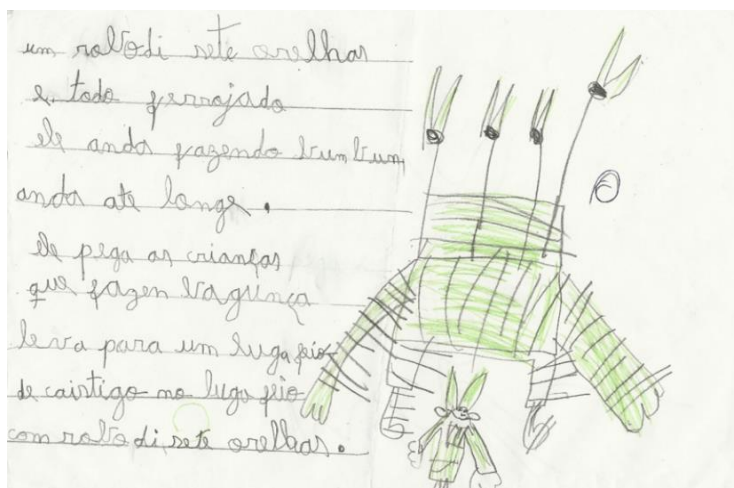 um robodi sete orelhas
e todo ferrojado
ele anda fazendo bumbum
anda ate longe.
ele pega as crianças
que fazen bagunça
leva para um luga feio
de caistigo no luga feio
com robo di sete orelhas.